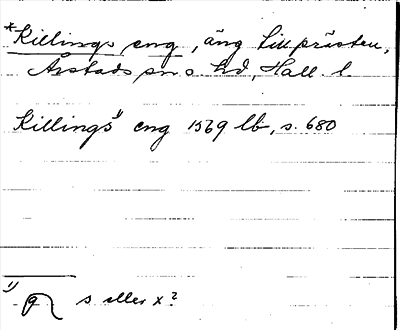 *Killings eng, äng till prästen,
Årstads sn o hd, Hall. l.
Killings¹⁾ eng 1569 lb, s. 680
¹⁾ s eller x?